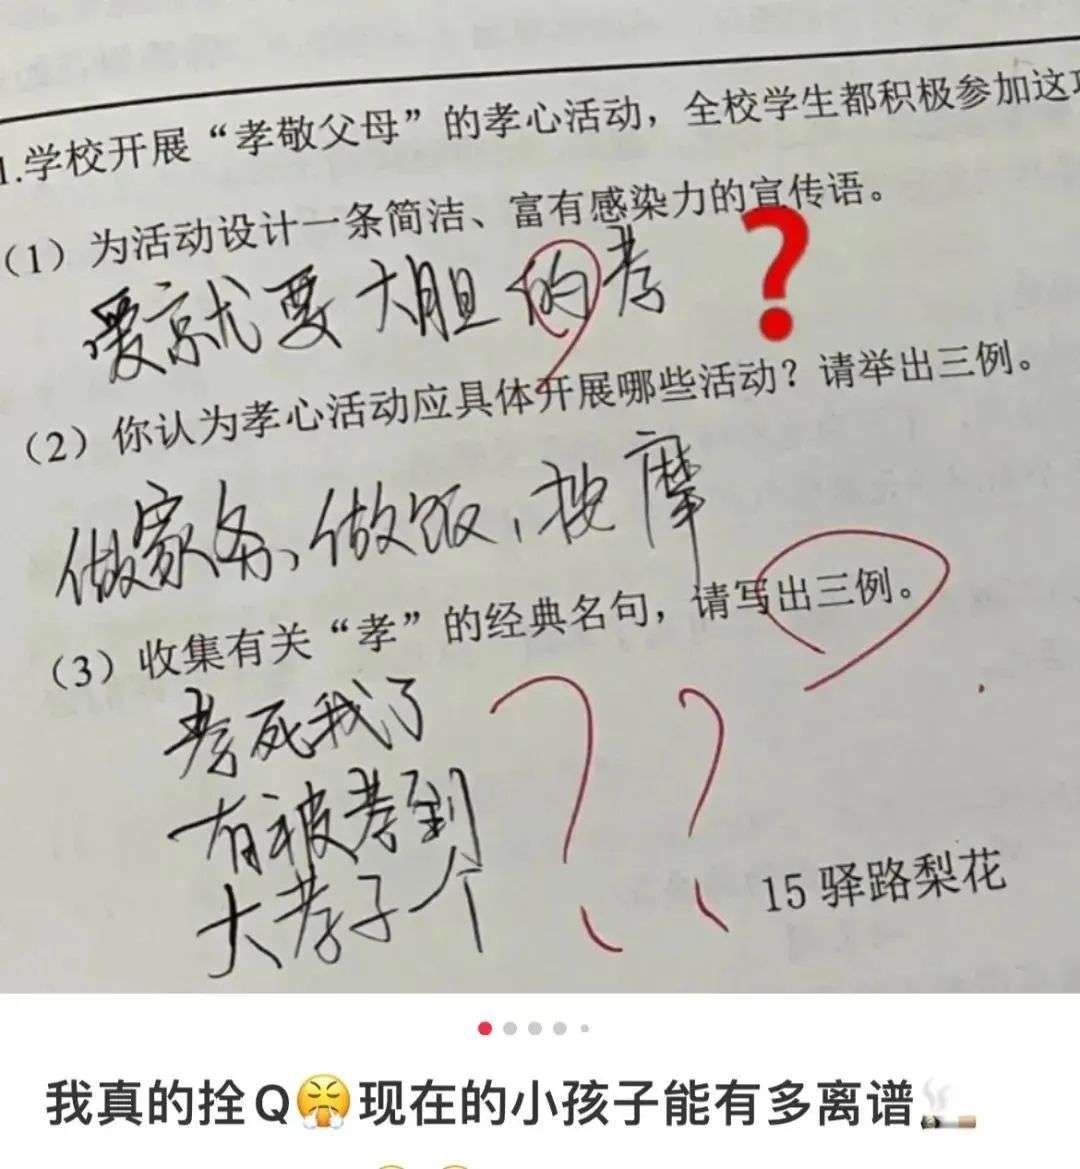 1.学校开展“孝敬父母”的孝心活动，全校学生都积极参加这
（1）为活动设计一条简洁、富有感染力的宣传语。
爱就要大胆的孝
（2）你认为孝心活动应具体开展哪些活动？请举出三例。
做家务、做饭，按摩
（3）收集有关“孝”的经典名句，请写出三例。
孝死我了
有被孝到
大孝子一个
15 驿路梨花
我真的拴Q现在的小孩子能有多离谱